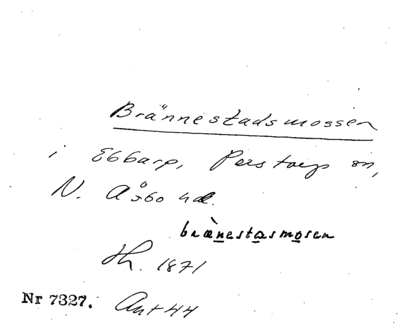 Brännestadsmossen
i Ebbarp, Perstorp sn,
N. Åsbo hd.
brànestasmosen
Th. 1871
Nr 7327. Ant 44